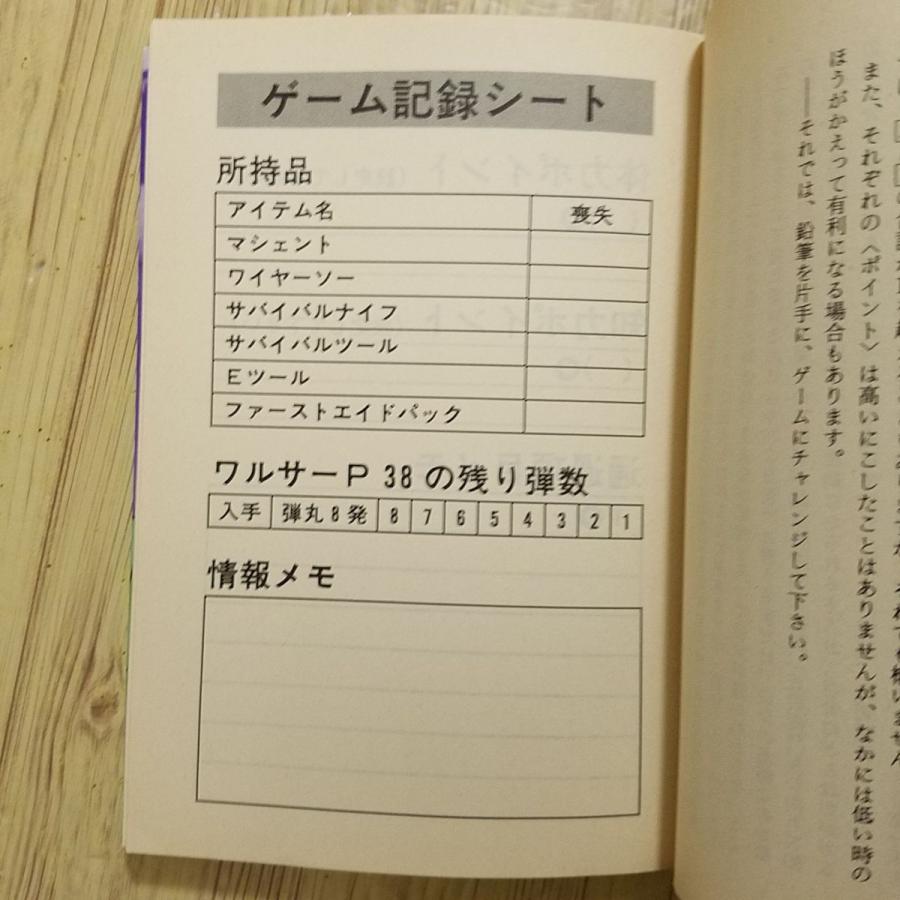 ゲーム記録シート
所持品
アイテム名 喪失
マシェント
ワイヤーソー
サバイバルナイフ
サバイバルツール
Eツール
ファーストエイドパック
ワルサーP 38 の残り弾数
入手 弾丸8発 8 7 6 5 4 3 2 1
情報メモ
また、それぞれの〈ポイント〉は高いにこしたことはありませんが、なかには低い時の
ほうがかえって有利になる場合もあります。
――それでは、鉛筆を片手に、ゲームにチャレンジして下さい。